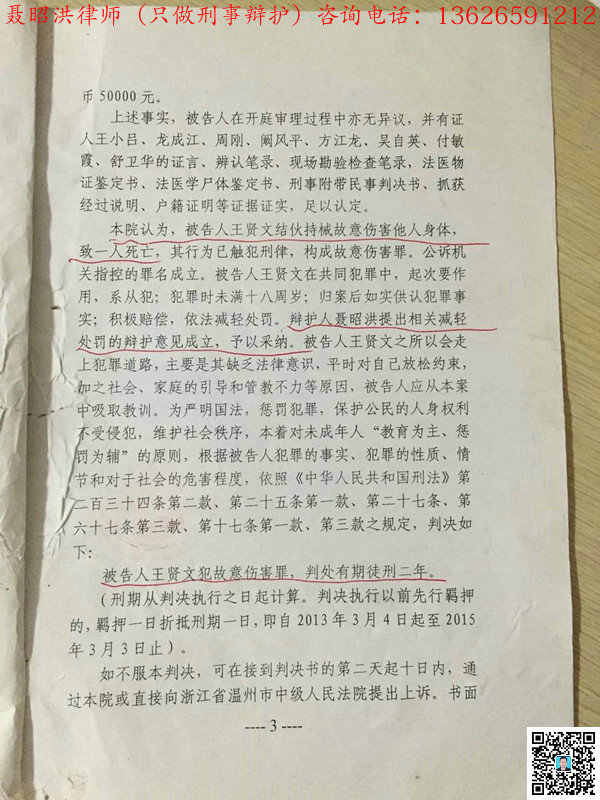 聂昭洪律师（只做刑事辩护）咨询电话：13626591212
币 50000 元。
上述事实，被告人在开庭审理过程中亦无异议，并有证
人王小吕、龙成江、周刚、阚风平、方江龙、吴自英、付敏
霞、舒卫华的证言、辨认笔录、现场勘验检查笔录，法医物
证鉴定书、法医学尸体鉴定书、刑事附带民事判决书、抓获
经过说明、户籍证明等证据证实，足以认定。
本院认为，被告人王贤文结伙持械故意伤害他人身体，
致一人死亡，其行为已触犯刑律，构成故意伤害罪。公诉机
关指控的罪名成立。被告人王贤文在共同犯罪中，起次要作
用，系从犯；犯罪时未满十八周岁；归案后如实供认犯罪事
实；积极赔偿，依法减轻处罚。辩护人聂昭洪提出相关减轻
处罚的辩护意见成立，予以采纳。被告人王贤文之所以会走
上犯罪道路，主要是其缺乏法律意识，平时对自己放松约束，
加之社会、家庭的引导和管教不力等原因，被告人应从本案
中吸取教训。为严明国法，惩罚犯罪，保护公民的人身权利
不受侵犯，维护社会秩序，本着对未成年人“教育为主、惩
罚为辅”的原则，根据被告人犯罪的事实、犯罪的性质、情
节和对于社会的危害程度，依照《中华人民共和国刑法》第
二百三十四条第二款、第二十五条第一款、第二十七条、第
六十七条第三款、第十七条第一款、第三款之规定，判决如
下：
被告人王贤文犯故意伤害罪，判处有期徒刑二年。
（刑期从判决执行之日起计算。判决执行以前先行羁押
的，羁押一日折抵刑期一日，即自 2013 年 3 月 4 日起至 2015
年 3 月 3 日止）。
如不服本判决，可在接到判决书的第二天起十日内，通
过本院或直接向浙江省温州市中级人民法院提出上诉。书面
---- 3 ----